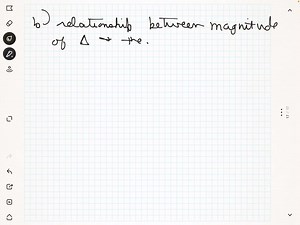 b) relationship between magnitude
of Δ → +ve.